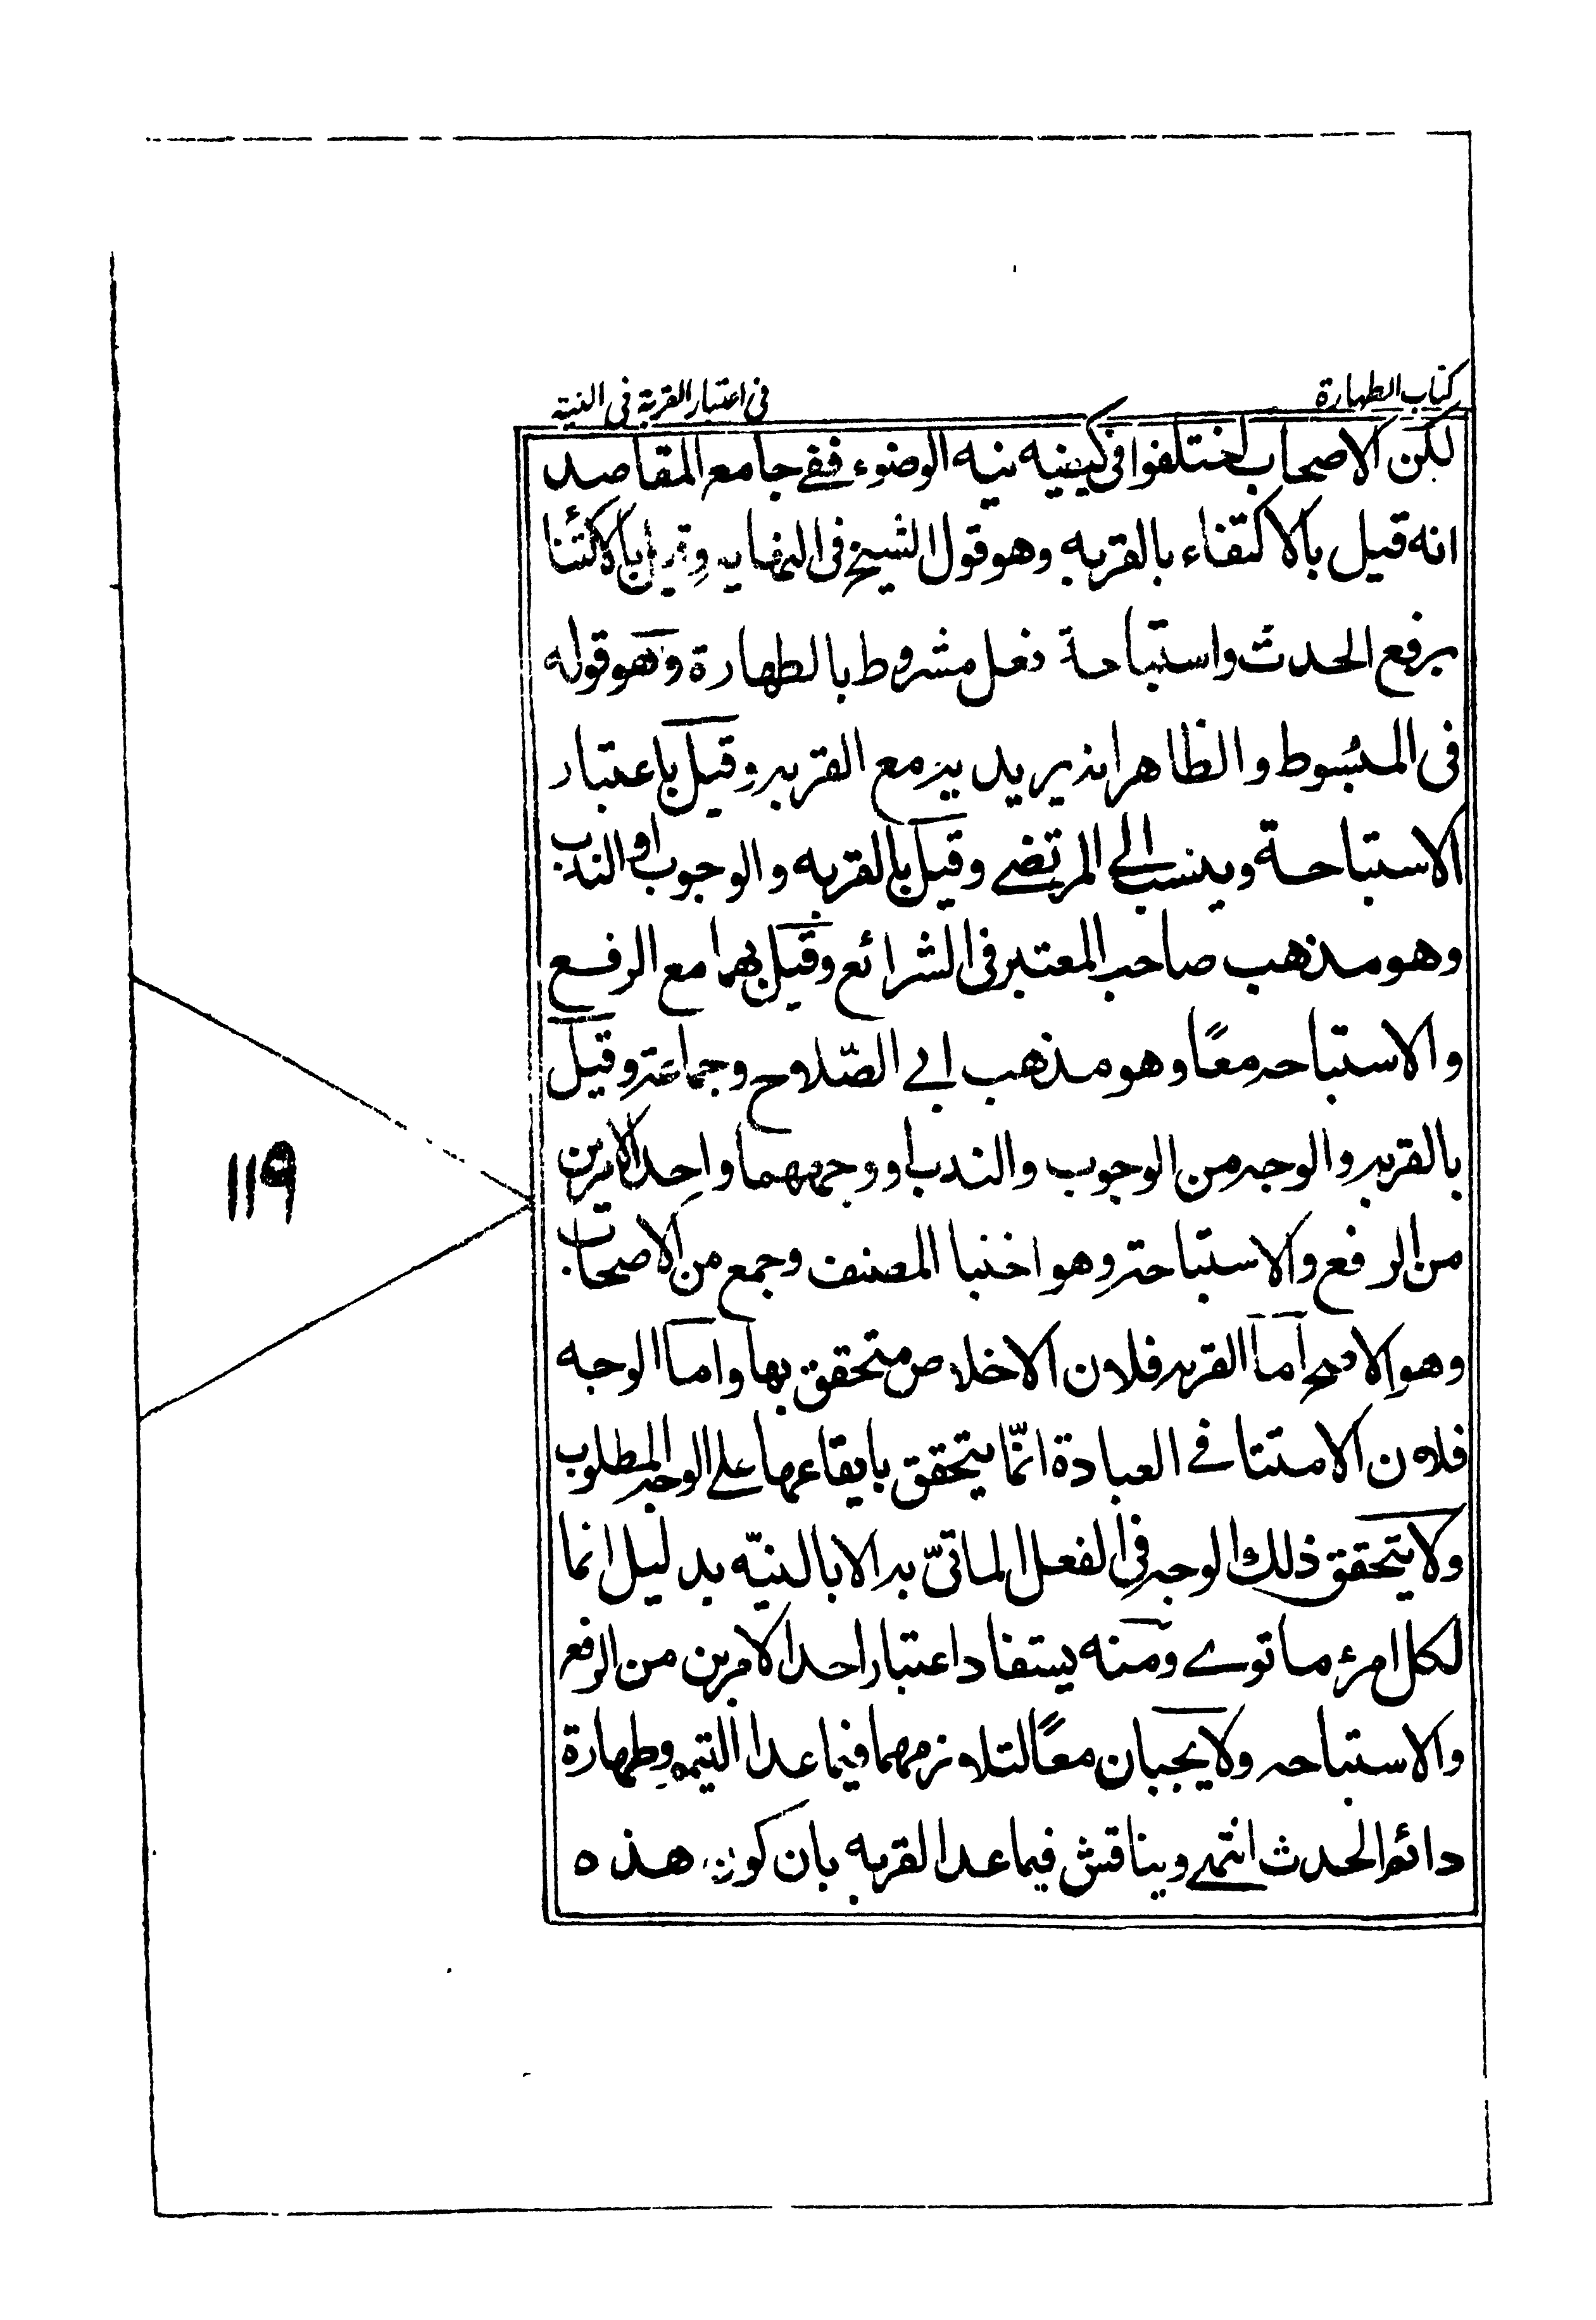 كتاب الطهارة
في اعتبار القربة في النية
لكن الاصحاب اختلفوا في كيفيه نيه الوضوء ففي جامع المقاصد
انه قيل بالاكتفاء بالقربه وهو قول الشيخ في النهايه وقيل بالاكتفا
برفع الحدث واستباحة فعل مشروط بالطهارة وهو قوله
في المبسوط والظاهر انه يريد به مع القربه وقيل باعتبار
الاستباحة وينسب الى المرتضى وقيل بالقربه والوجوب او الندب
وهو مذهب صاحب المعتبر في الشرائع وقيل بهما مع الرفع
والاستباحه معًا وهو مذهب ابي الصّلاح وجماعة وقيل
بالقربه والوجه من الوجوب والندب او وجههما واحد الامرين
من الرفع والاستباحة وهو اختيا المصنف وجمع من الاصحاب
وهو الاصح اما القربه فلان الاخلاص متحقق بها واما الوجه
فلان الامتثا في العبادة انّما يتحقق بايقاعها على الوجه المطلوب
ولا يتحقق ذلك الوجه في الفعل الماتىّ به الا بالنيّه بدليل انما
لكل امرء ما نوى ومنه يستفاد اعتبار احد الامرين من الرفع
والاستباحه ولا يجبان معًا لتلازمهما فيما عدا التيمم وطهارة
دائم الحدث انتهى ويناقش فيما عدا القربه بان كون هذه
١١٩